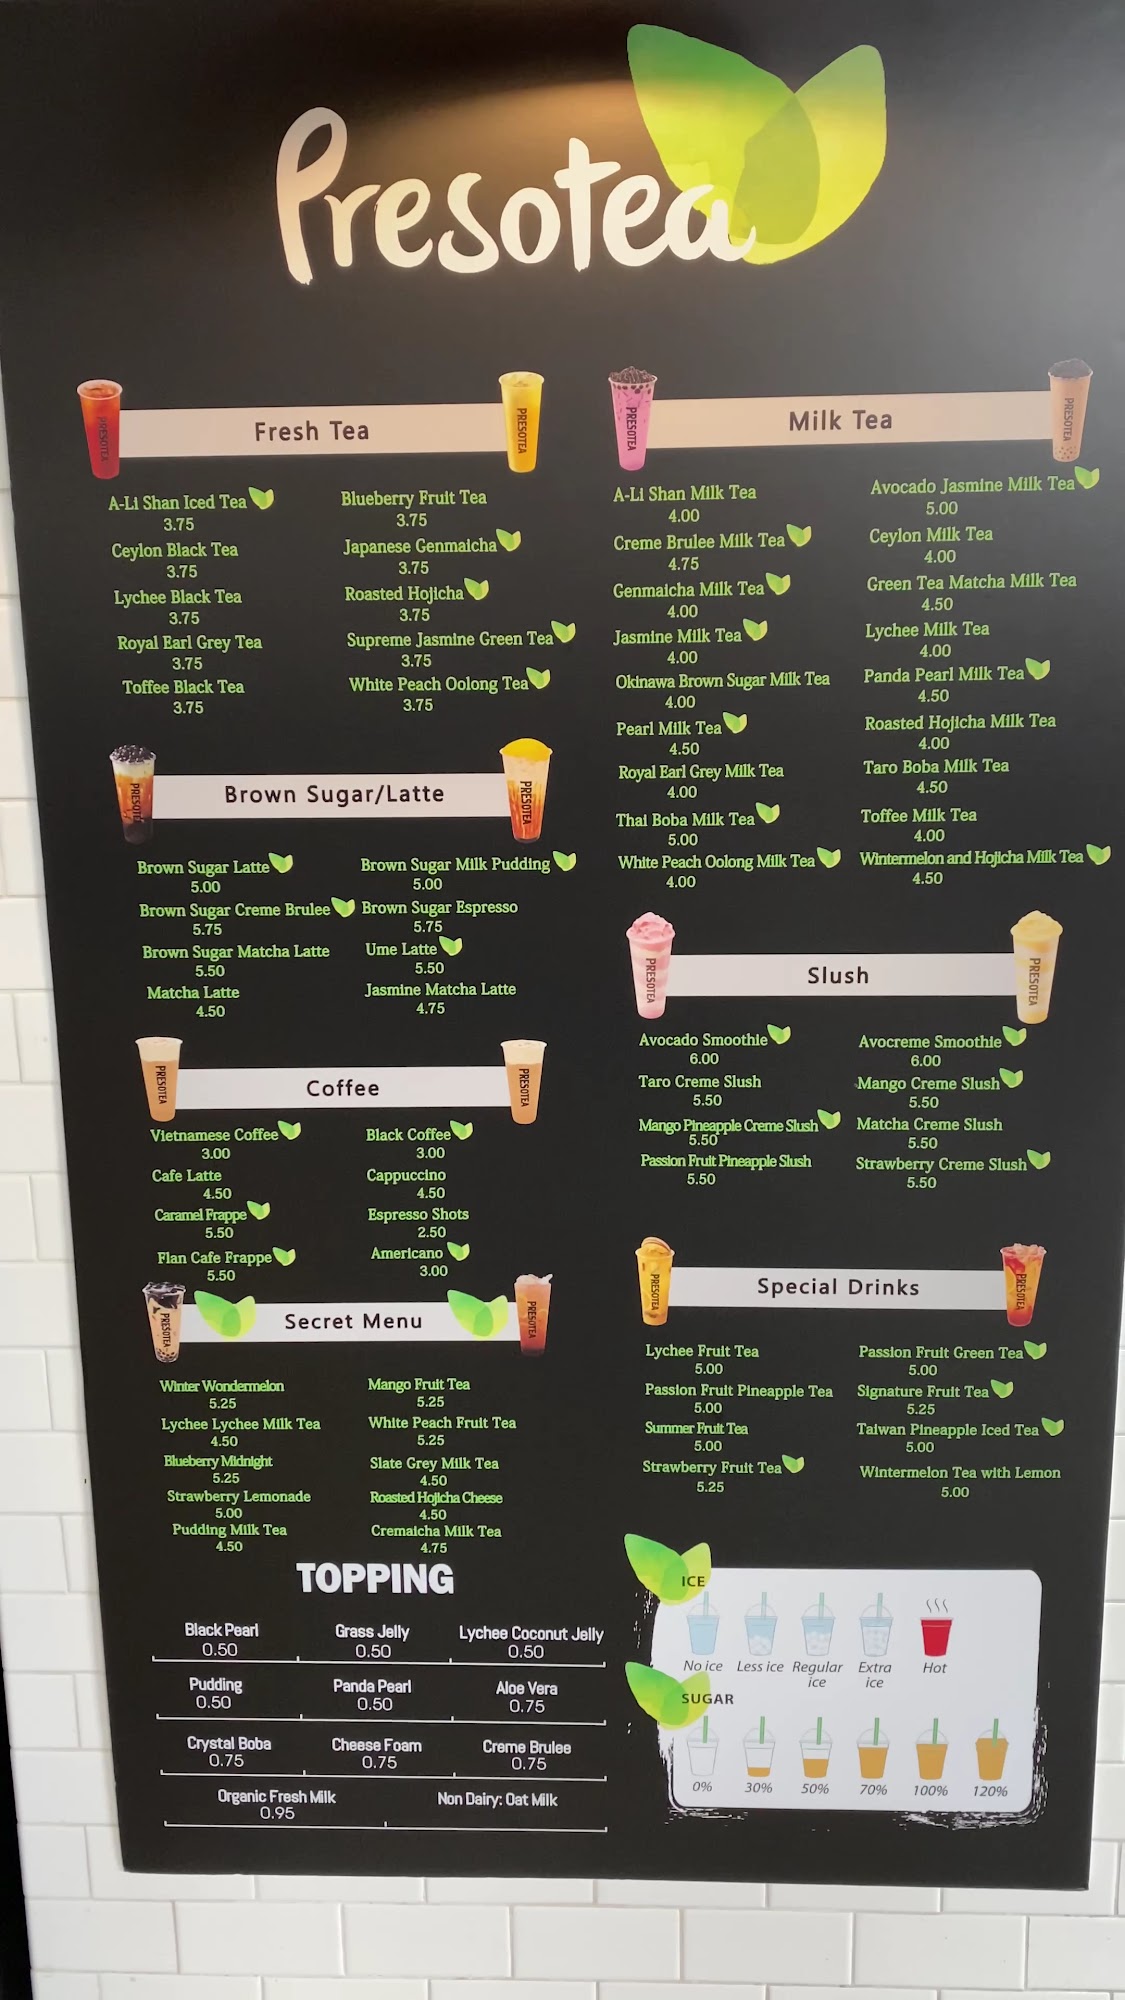 Presotea
Fresh Tea
A-Li Shan Iced Tea
3.75
Ceylon Black Tea
3.75
Lychee Black Tea
3.75
Royal Earl Grey Tea
3.75
Toffee Black Tea
3.75
Blueberry Fruit Tea
3.75
Japanese Genmaicha
3.75
Roasted Hojicha
3.75
Supreme Jasmine Green Tea
3.75
White Peach Oolong Tea
3.75
Brown Sugar/Latte
Brown Sugar Latte
5.00
Brown Sugar Creme Brulee
5.75
Brown Sugar Matcha Latte
5.50
Matcha Latte
4.50
Brown Sugar Milk Pudding
5.00
Brown Sugar Espresso
5.75
Ume Latte
5.50
Jasmine Matcha Latte
4.75
Coffee
Vietnamese Coffee
3.00
Cafe Latte
4.50
Caramel Frappe
5.50
Flan Cafe Frappe
5.50
Black Coffee
3.00
Cappuccino
4.50
Espresso Shots
2.50
Americano
3.00
Secret Menu
Winter Wondermelon
5.25
Lychee Lychee Milk Tea
4.50
Blueberry Midnight
5.25
Strawberry Lemonade
5.00
Pudding Milk Tea
4.50
Mango Fruit Tea
5.25
White Peach Fruit Tea
5.25
Slate Grey Milk Tea
4.50
Roasted Hojicha Cheese
4.50
Cremaicha Milk Tea
4.75
Milk Tea
A-Li Shan Milk Tea
4.00
Creme Brulee Milk Tea
4.75
Genmaicha Milk Tea
4.00
Jasmine Milk Tea
4.00
Okinawa Brown Sugar Milk Tea
4.00
Pearl Milk Tea
4.50
Royal Earl Grey Milk Tea
4.00
Thai Boba Milk Tea
5.00
White Peach Oolong Milk Tea
4.00
Avocado Jasmine Milk Tea
5.00
Ceylon Milk Tea
4.00
Green Tea Matcha Milk Tea
4.50
Lychee Milk Tea
4.00
Panda Pearl Milk Tea
4.50
Roasted Hojicha Milk Tea
4.00
Taro Boba Milk Tea
4.50
Toffee Milk Tea
4.00
Wintermelon and Hojicha Milk Tea
4.50
Slush
Avocado Smoothie
6.00
Taro Creme Slush
5.50
Mango Pineapple Creme Slush
5.50
Passion Fruit Pineapple Slush
5.50
Avocreme Smoothie
6.00
Mango Creme Slush
5.50
Matcha Creme Slush
5.50
Strawberry Creme Slush
5.50
Special Drinks
Lychee Fruit Tea
5.00
Passion Fruit Pineapple Tea
5.00
Summer Fruit Tea
5.00
Strawberry Fruit Tea
5.25
Passion Fruit Green Tea
5.00
Signature Fruit Tea
5.25
Taiwan Pineapple Iced Tea
5.00
Wintermelon Tea with Lemon
5.00
TOPPING
Black Pearl
0.50
Grass Jelly
0.50
Lychee Coconut Jelly
0.50
Pudding
0.50
Panda Pearl
0.50
Aloe Vera
0.75
Crystal Boba
0.75
Cheese Foam
0.75
Creme Brulee
0.75
Organic Fresh Milk
0.95
Non Dairy: Oat Milk
ICE
No ice
Less ice
Regular ice
Extra ice
Hot
SUGAR
0%
30%
50%
70%
100%
120%
PRESOTEA
PRESOTEA
PRESOTEA
PRESOTEA
PRESOTEA
PRESOTEA
PRESOTEA
PRESOTEA
PRESOTEA
PRESOTEA
PRESOTEA
PRESOTEA
PRESOTEA
PRESOTEA